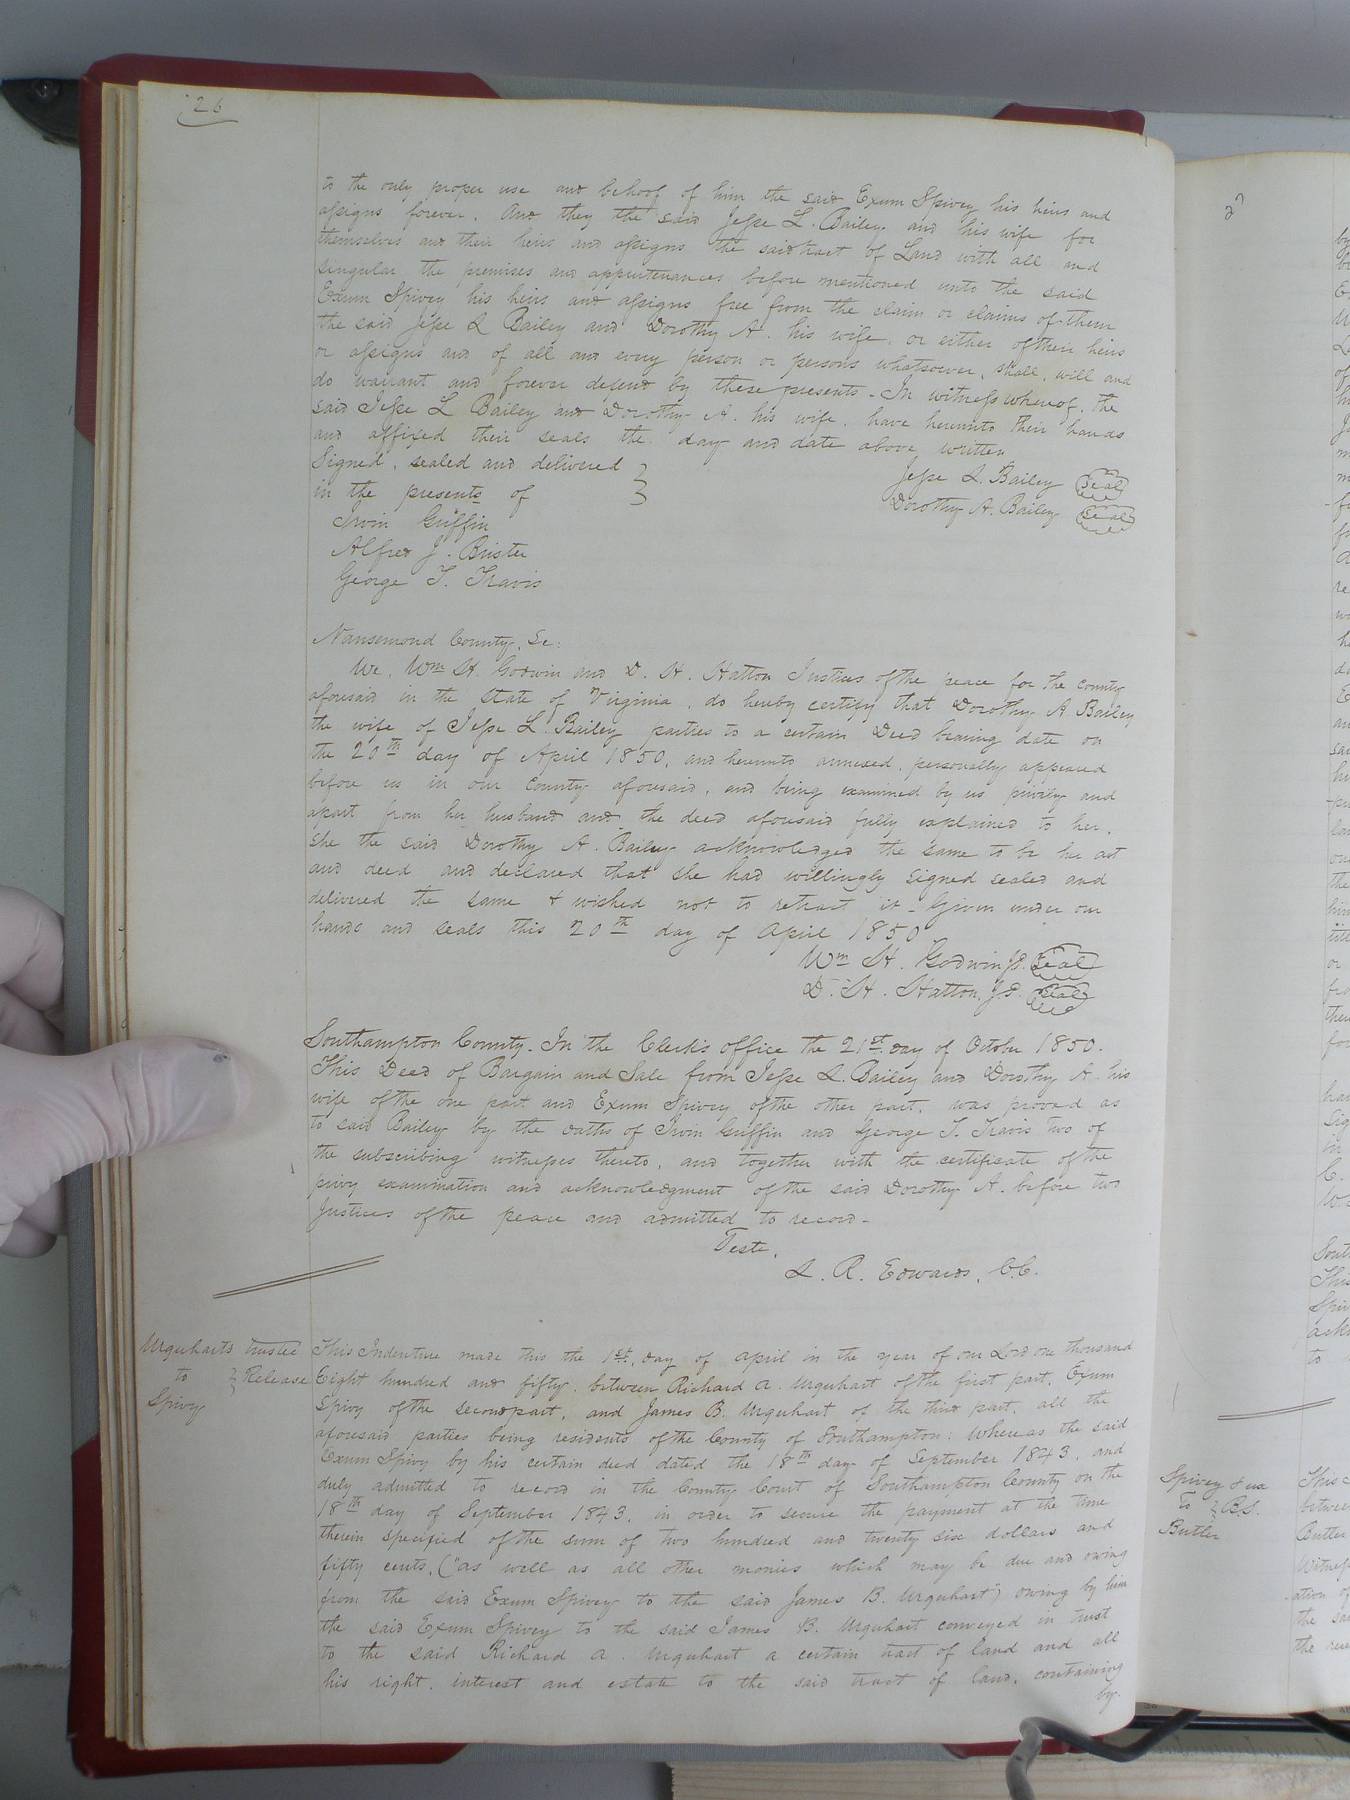 26
to the only proper use and behoof of him the said Exum Spivey his heirs and
assigns forever. And they the said Jesse L. Bailey and his wife for
themselves and their heirs and assigns the said tract of Land with all and
singular the premises and appurtenances before mentioned unto the said
Exum Spivey his heirs and assigns free from the claim or claims of them
the said Jesse L Bailey and Dorothy A. his wife, or either of their heirs
or assigns and of all and every person or persons whatsoever, shall, will and
do warrant and forever defend by these presents - In witness whereof, the
said Jesse L Bailey and Dorothy A. his wife, have hereunto their hands
and affixed their seals the day and date above written
Signed, sealed and delivered
in the presents of
Jesse L. Bailey Seal
Dorothy A. Bailey Seal
Irvin Griffin
Alfred J. Brister
George T. Travis
Nansemond County, Sc:
We, Wm H. Godwin and D. H. Hatton Justices of the peace for the county
aforesaid in the State of Virginia, do hereby certify that Dorothy A Bailey
the wife of Jesse L. Bailey parties to a certain Deed bearing date on
the 20th day of April 1850, and hereunto annexed, personally appeared
before us in our County aforesaid, and being examined by us privily and
apart from her husband and the deed aforesaid fully explained to her,
she the said Dorothy A. Bailey acknowledged the same to be her act
and deed and declared that she had willingly signed sealed and
delivered the same & wished not to retract it - Given under our
hands and seals this 20th day of April 1850
Wm H. Godwin J.P. Seal
D. H. Hatton, J.P. Seal
Southampton County - In the Clerk's office the 21st day of October 1850.
This Deed of Bargain and Sale from Jesse L. Bailey and Dorothy A. his
wife of the one part and Exum Spivey of the other part, was proved as
to said Bailey by the oaths of Irvin Griffin and George T. Travis two of
the subscribing witnesses thereto, and together with the certificate of the
privy examination and acknowledgment of the said Dorothy A. before two
Justices of the peace and admitted to record -
Teste,
L. R. Edwards, C.C.
Urquharts trustee
to } Release
Spivey
This Indenture made this the 1st day of April in the year of our Lord one thousand
Eight hundred and fifty, between Richard A. Urquhart of the first part, Exum
Spivy of the second part, and James B. Urquhart of the third part, all the
aforesaid parties being residents of the County of Southampton: Whereas the said
Exum Spivy by his certain deed dated the 18th day of September 1843, and
duly admitted to record in the County Court of Southampton County on the
18th day of September 1843, in order to secure the payment at the time
therein specified of the sum of two hundred and twenty six dollars and
fifty cents, ("as well as all other monies which may be due and owing
from the said Exum Spivey to the said James B. Urquhart") owing by him
the said Exum Spivey to the said James B. Urquhart conveyed in trust
to the said Richard A. Urquhart a certain tract of land and all
his right, interest and estate to the said tract of land, containing
by
Spivey & ux
to } B.S.
Butler